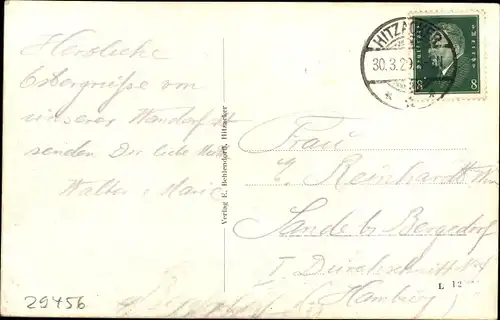 Herzliche
Ostergrüße von
unserer Wanderfahrt
senden Dir liebe
Walter & Marie
Verlag E. Behlendorff, Hitzacker
HITZACKER
30.3.29
Deutsches Reich
8 8
Frau
E. Reinhardt Ww
Sande b/ Bergedorf
I Durchschnitt
(Hamburg)
L 12
29456